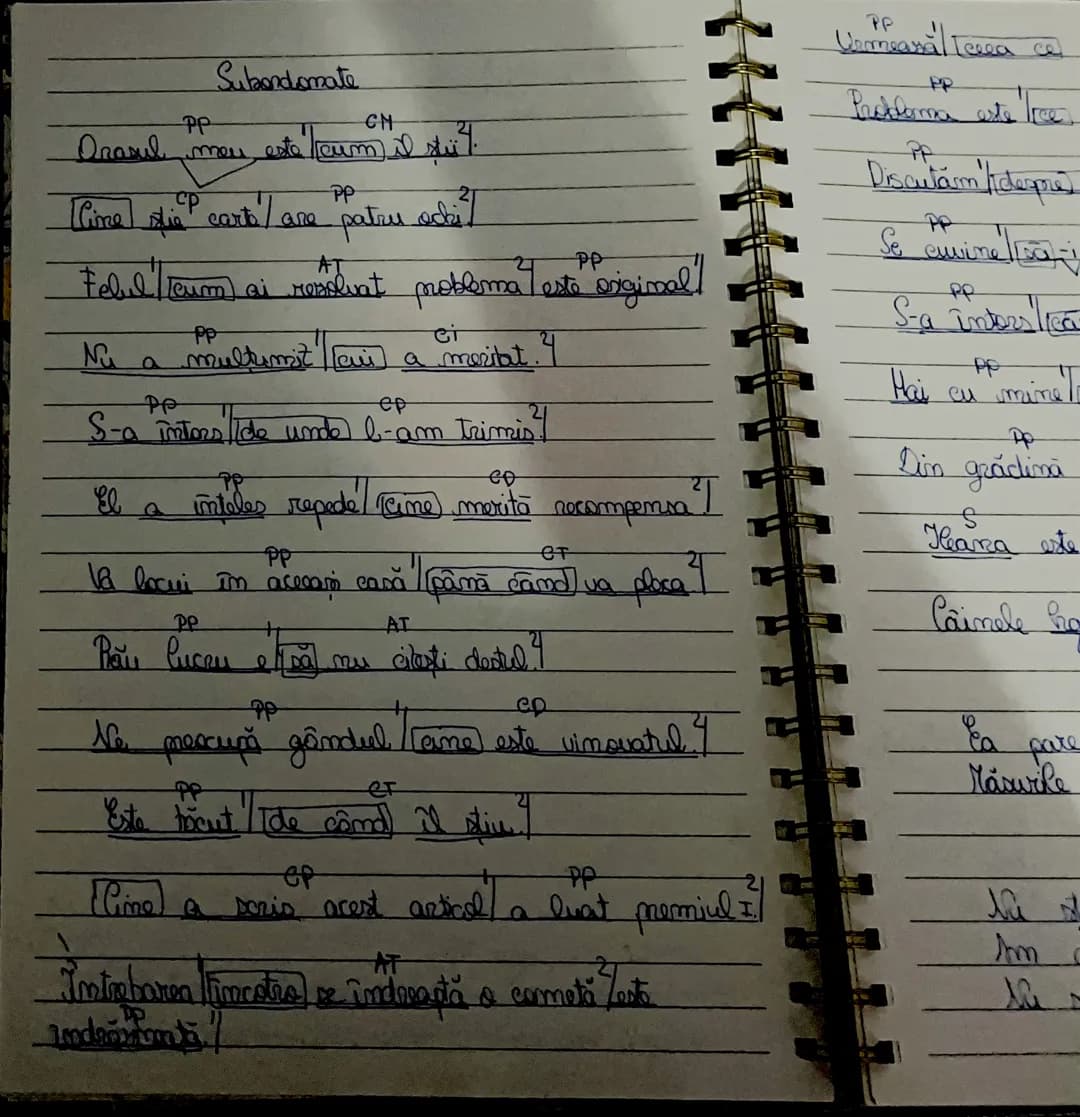 Subordonate
PP CM
Orașul meu este 1/ cum îl știi 2/.
CP PP
Cine știe carte 1/ are patru ochi 2/
AT PP
Felul 1/ cum ai rezolvat problema 2/ este original 1/
PP Ci
Nu a mulțumit 1/ cui a meritat. 2/
PP CP
S-a întors 1/ de unde l-am trimis. 2/
PP CD
El a înțeles repede 1/ cine merită recompensa 2/
PP CT
Va locui în aceeași casă 1/ până când va pleca 2/
PP AT
Rău lucru e 1/ să nu citești destul 2/
PP CD
Ne preocupă gândul 1/ cine este vinovatul. 2/
PP CT
Este tăcut 1/ de când îl știu 2/
CP PP
Cine a scris acest articol 1/ a luat premiul I. 2/
AT
Întrebarea 1/ încotro se îndreaptă o cometă 2/ este
PP
îndrăzneață. 1/
PP
Urmează 1/ ceea ce
PP
Problema este 1/ ce
PP
Discutăm 1/ despre
PP
Se cuvine 1/ să-i
PP
S-a întors 1/ că
PP
Hai cu mine 1/
PP
Din grădină
S
Ileana este
Câinele
Ea pare
Măsurile
Nu
Am
Nu